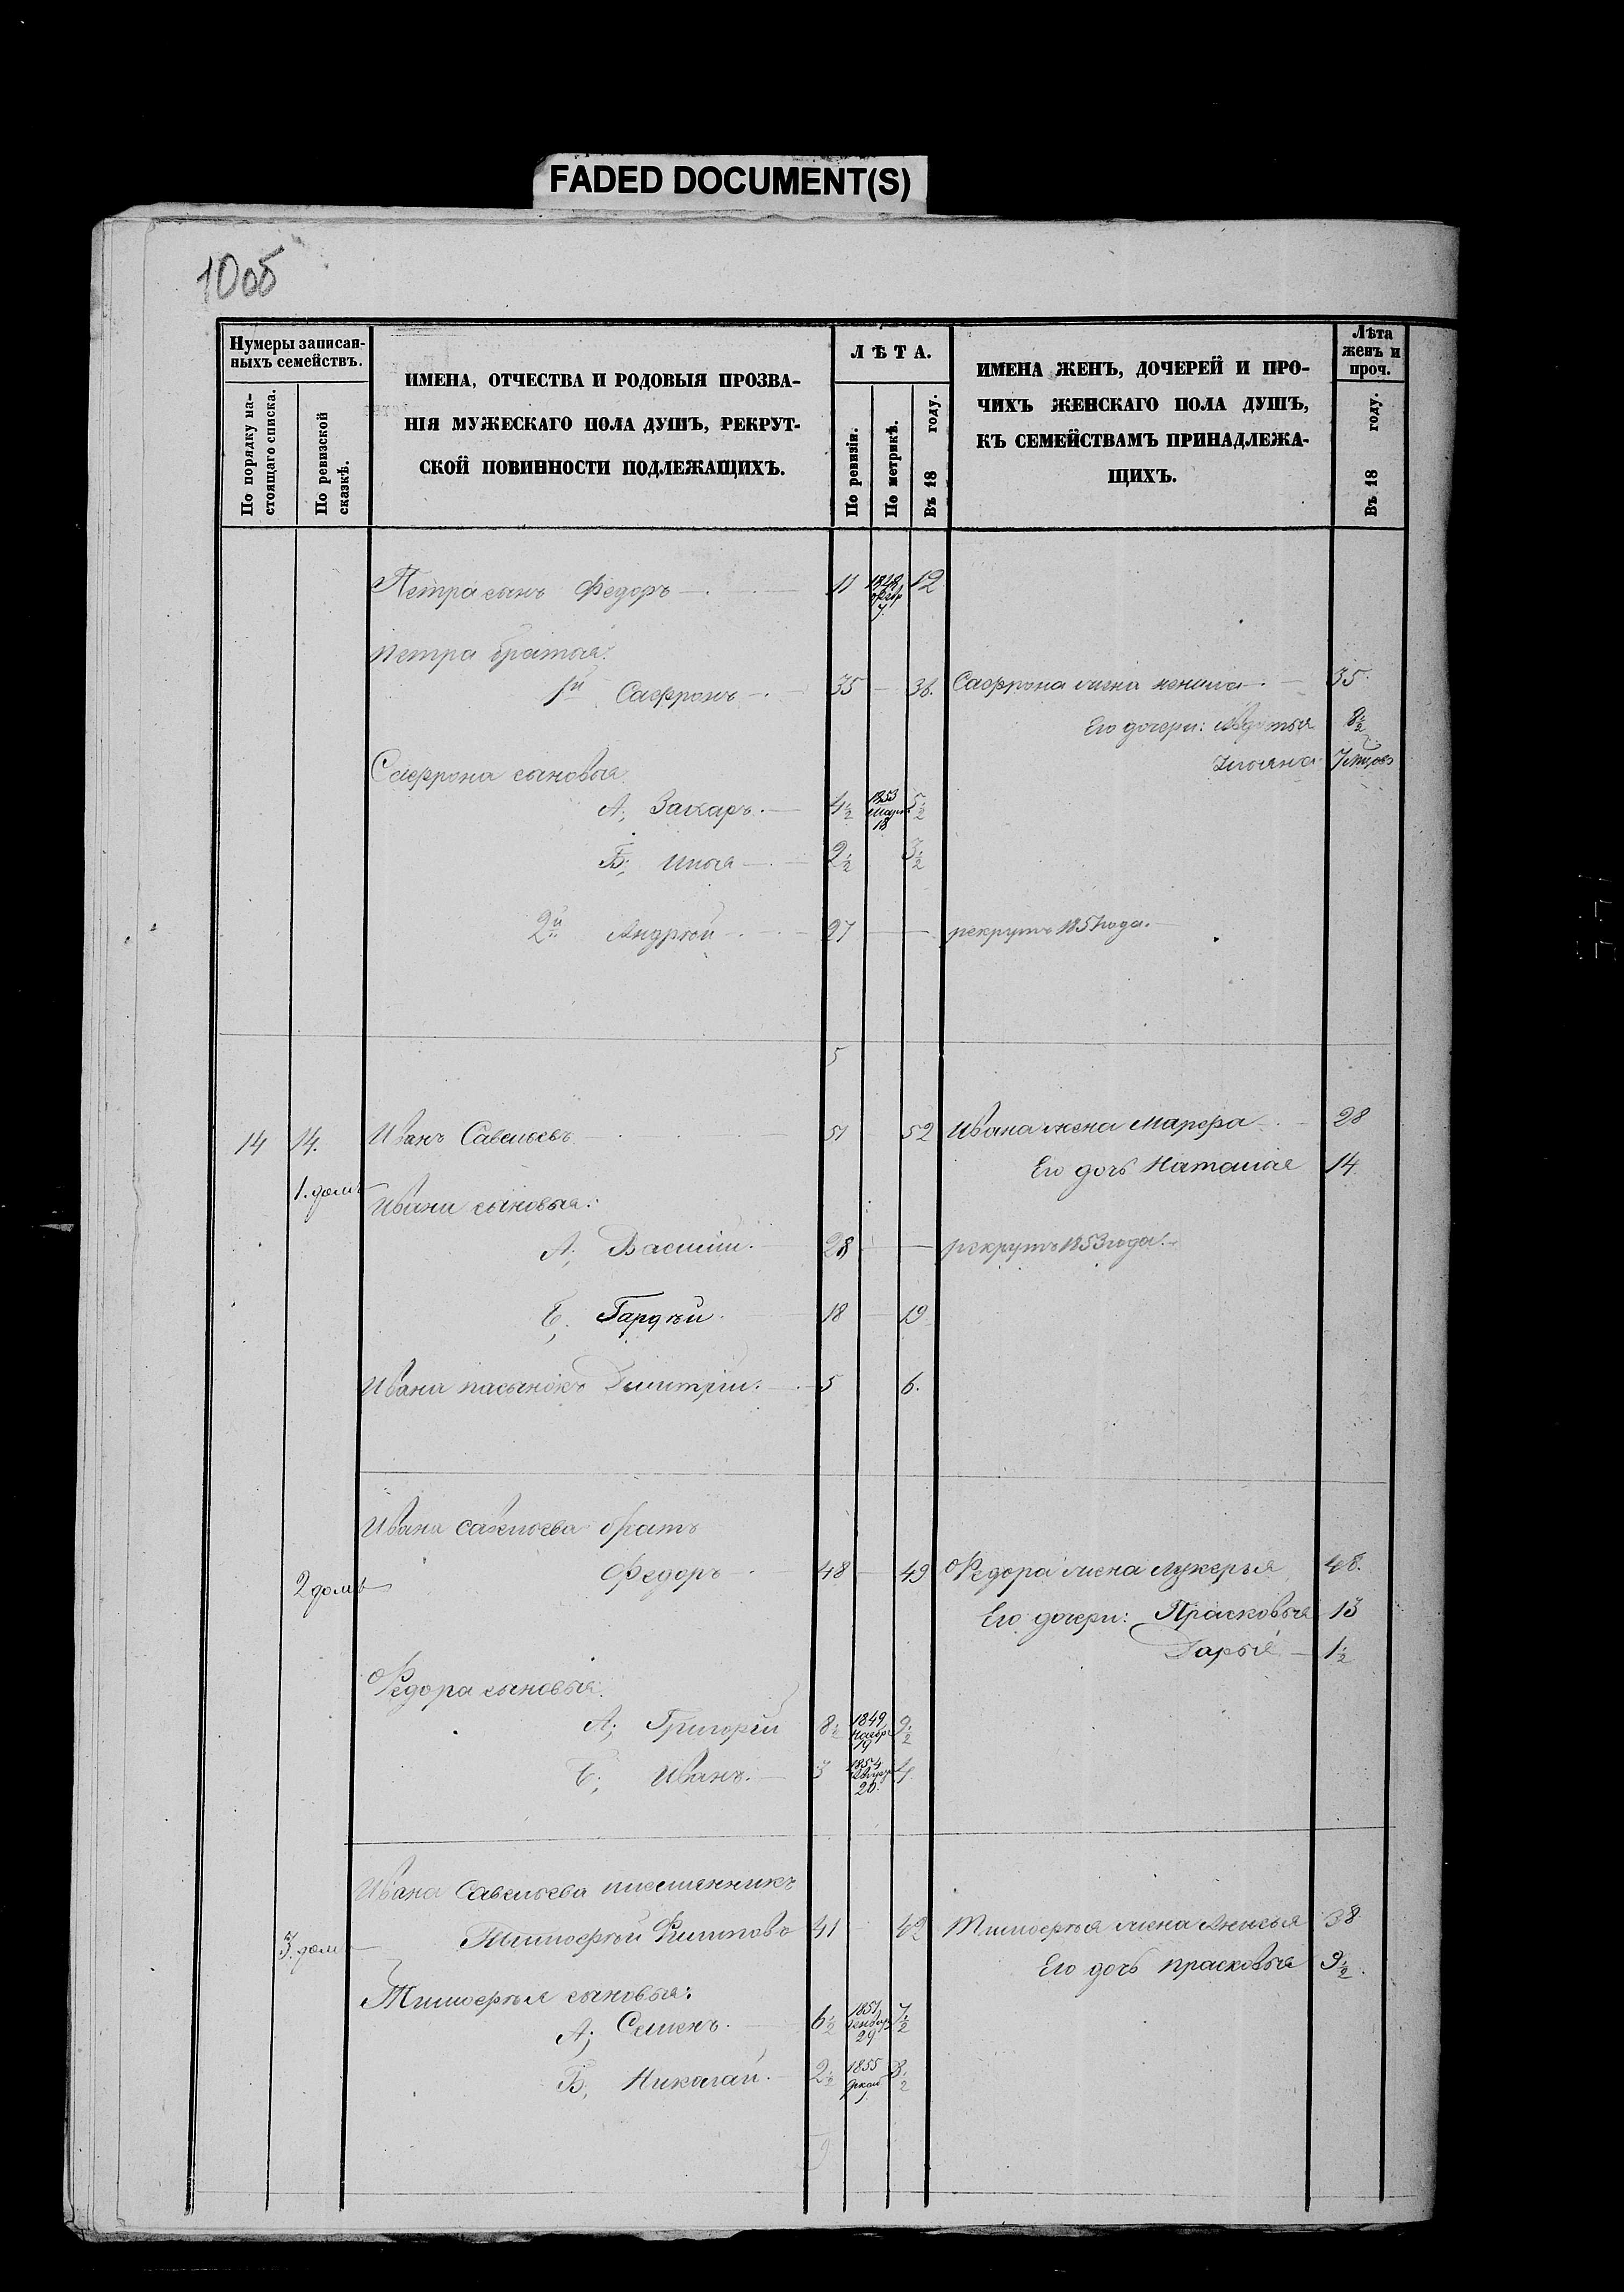 FADED DOCUMENT(S)
10об
Нумеры записан-
ныхъ семействъ.
По порядку на-
стоящаго списка.
По ревизской
сказкѣ.
ИМЕНА, ОТЧЕСТВА И РОДОВЫЯ ПРОЗВА-
НІЯ МУЖЕСКАГО ПОЛА ДУШЪ, РЕКРУТ-
СКОЙ ПОВИННОСТИ ПОДЛЕЖАЩИХЪ.
ЛѢТА.
По ревизіи.
По метрикѣ.
Въ 18 году.
ИМЕНА ЖЕНЪ, ДОЧЕРЕЙ И ПРО-
ЧИХЪ ЖЕНСКАГО ПОЛА ДУШЪ,
КЪ СЕМЕЙСТВАМЪ ПРИНАДЛЕЖА-
ЩИХЪ.
Лѣта
женъ и
проч.
Въ 18 году.
Петра сынъ Федоръ 11 1848 12
Петра братья:
1й Сафронъ 35 36. Сафрона жена 35.
Его дочери: Авдотья 8½
Сафрона сыновья
А, Захаръ. 4½ 1853 Март 18 5½
Б, Илья 2½ 3½
2й Андрей 27 рекрутъ 1857 года.
5
14 14. Иванъ Савельевъ 51 52 Ивана жена Марфа 28
Его дочь Наталья 14
1. домъ
Ивана сыновья:
А, Василій. 28 рекрутъ 1853 года.
Б, Гардѣй. 18 19
Ивана пасынокъ Димитрій. 5 6.
Ивана Савельева братъ
2 домъ Федоръ 48 49 Федора жена Лукерья 48.
Его дочери: Прасковья 13
Дарья 1½
Федора сыновья.
А; Григорій 8½ 1849 Ноябр 19 9½
Б; Иванъ. 3 1854 20. 4
Ивана Савельева племянникъ
3. домъ Тимофѣй Филиповъ 41 42 Тимофѣя жена Анисья 38
Его дочь Прасковья 9½.
Тимофѣя сыновья:
А; Семенъ. 6½ 1851 Генвар 29 7½
Б, Николай. 2½ 1855 1 3½
9